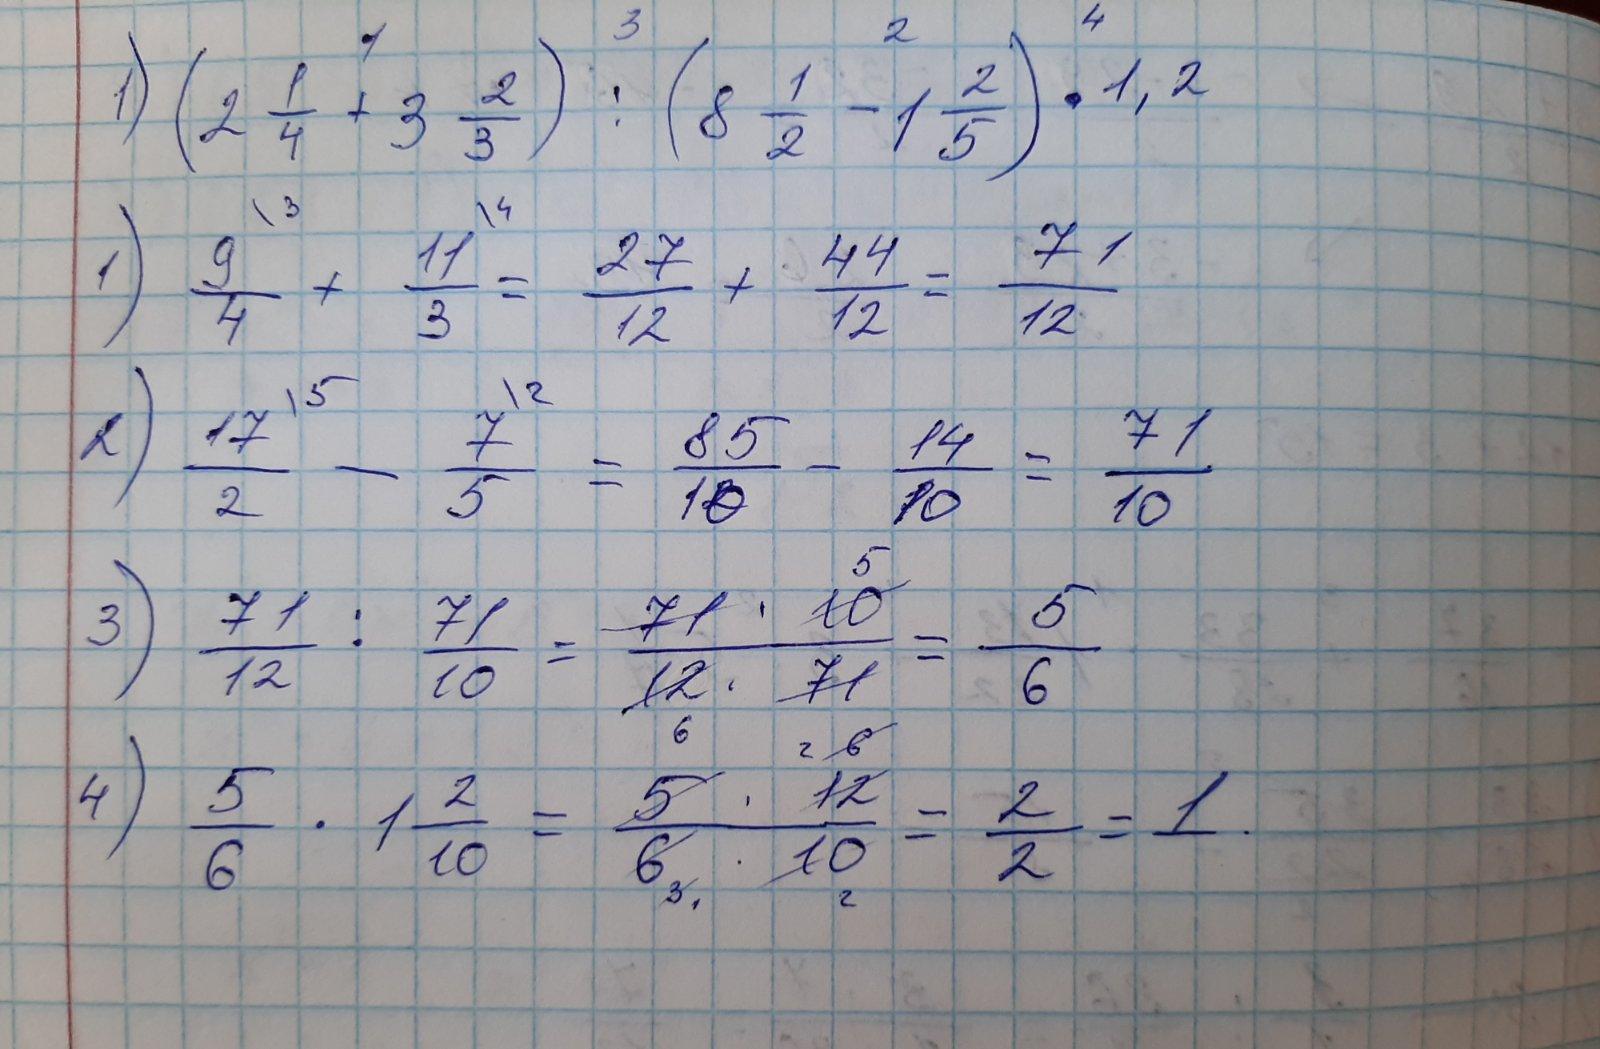 1) (2 1/4 + 3 2/3) : (8 1/2 - 1 2/5) · 1,2
1 3 2 4
1) 9/4 \3 + 11/3 \4 = 27/12 + 44/12 = 71/12
2) 17/2 \5 - 7/5 \2 = 85/10 - 14/10 = 71/10
3) 71/12 : 71/10 = 71 · 10 5 / 12 6 · 71 = 5/6
4) 5/6 · 1 2/10 = 5 · 12 6 2 / 6 3 1 · 10 2 = 2/2 = 1.